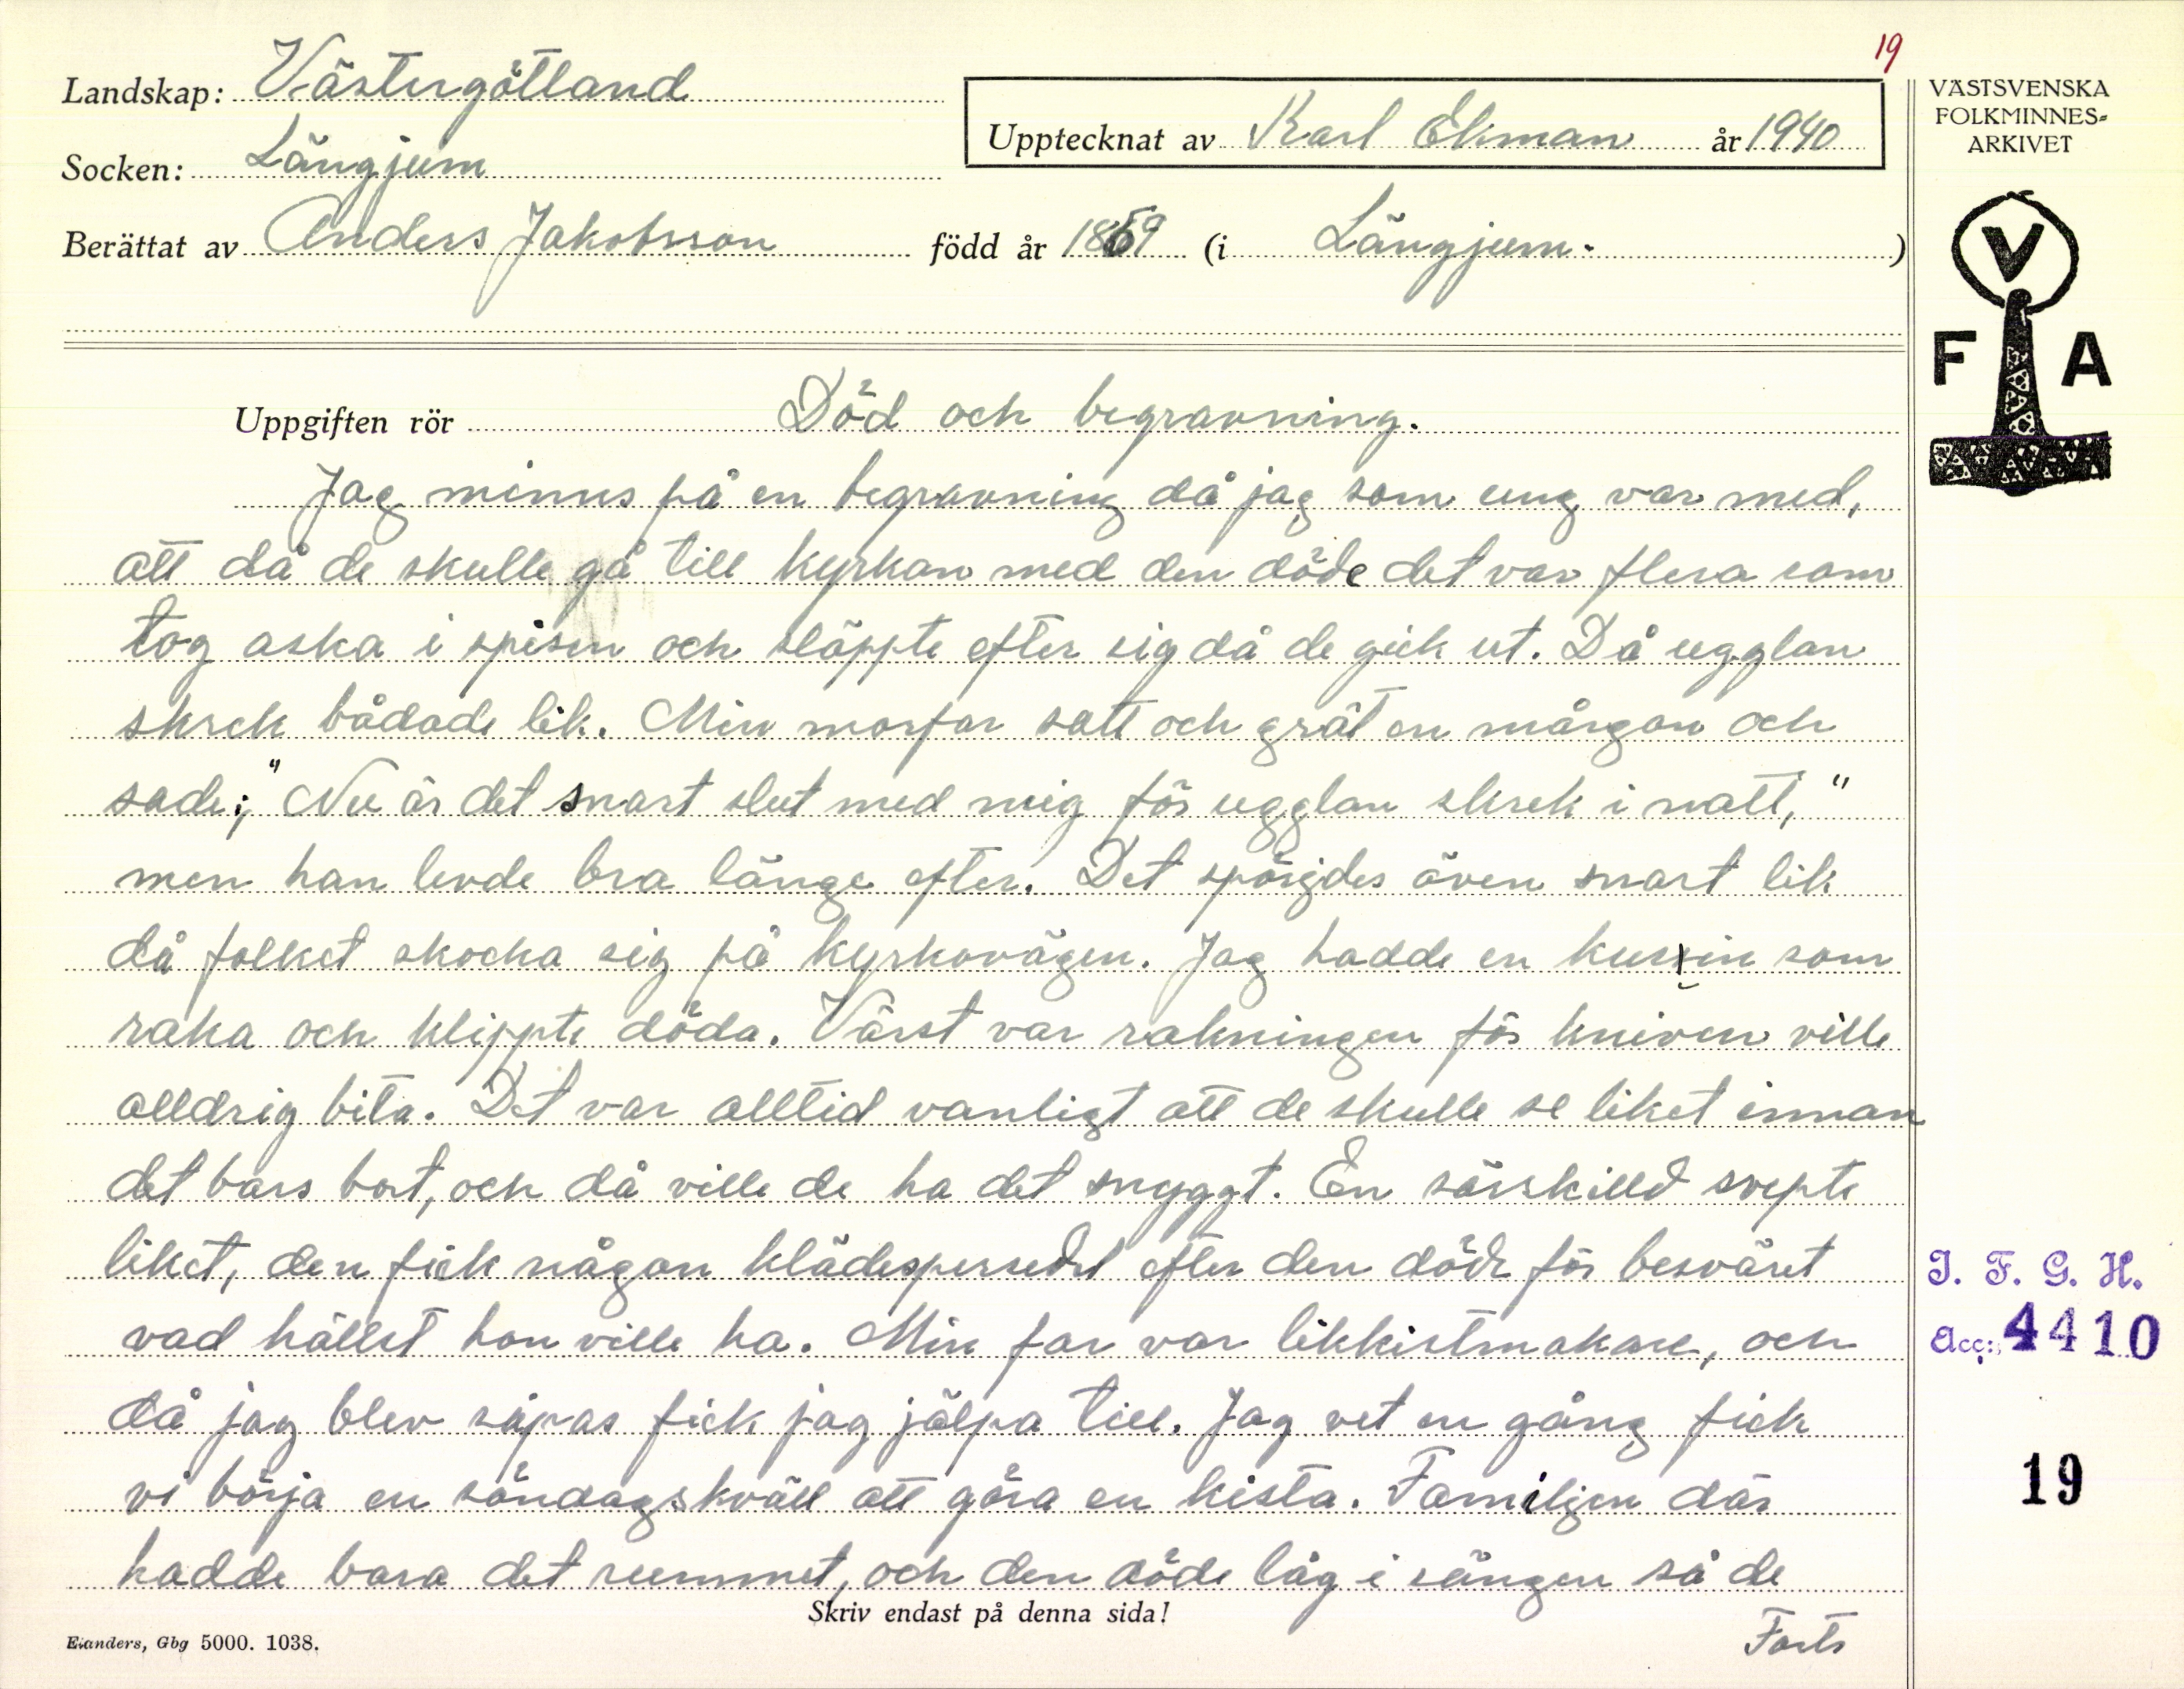 19
Landskap: Västergötland
Upptecknat av Karl Ekman år 1940
Socken: Längjum
Berättat av Anders Jakobsson född år 1859 (i Längjum. )
VÄSTSVENSKA
FOLKMINNES-
ARKIVET
V
F A
Uppgiften rör Död och begravning.
Jag minns på en begravning då jag som ung var med,
att då de skulle gå till kyrkan med den döde det var flera som
tog aska i spisen och släppte efter sig då de gick ut. Då ugglan
skrek bådade lik. Min morfar satt och grät en mårgon och
sade; "Nu är det snart slut med mig för ugglan skrek i natt,"
men han levde bra länge efter. Det spörjdes även snart lik
då folket skocka sig på kyrkovägen. Jag hadde en kusin som
raka och klippte döda. Värst var rakningen för kniven ville
alldrig bita. Det var alltid vanligt att de skulle se liket innan
det bars bort, och då ville de ha det snyggt. En särskilld svepte
liket, den fick någon klädespersedel efter den döde för besväret
vad hällst hon ville ha. Min far var likkistmakare, och
då jag blev såpas fick jag jälpa till. Jag vet en gång fick
vi börja en söndagskväll att göra en kista. Familjen där
hadde bara det rummet, och den döde låg i sängen så de
Skriv endast på denna sida!
Forts
Elanders, Gbg 5000. 1038.
I. F. G. H.
Acc: 4410
19